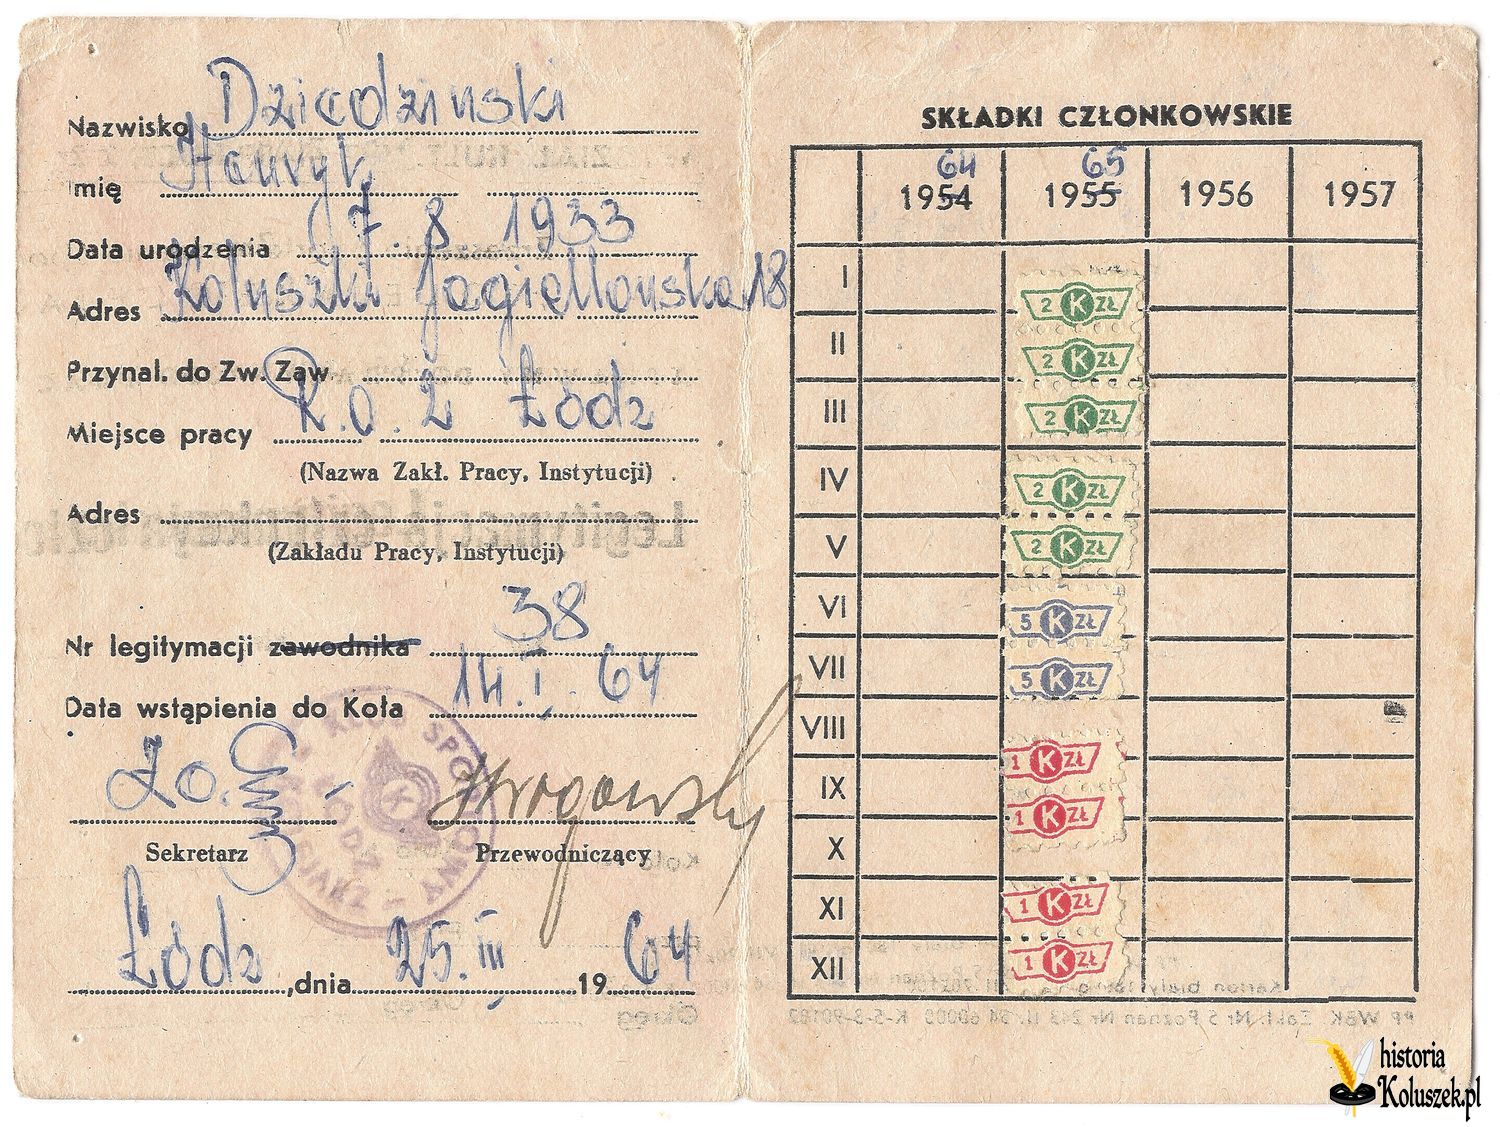 Nazwisko Dzicdzinski
Imię Henryk
Data urodzenia 7. 8 1933
Adres Koluszki Jagiellonska 18
Przynal. do Zw. Zaw
Miejsce pracy R.O. 2 Łódz
(Nazwa Zakł. Pracy, Instytucji)
Adres
(Zakładu Pracy, Instytucji)
Nr legitymacji zawodnika 38
Data wstąpienia do Koła 14. I. 64
KOŁO SPORTOWE
ŁÓDŹ
K
Sekretarz Przewodniczący
Łódz, dnia 25. III 1964
SKŁADKI CZŁONKOWSKIE
64 65
1954 1955 1956 1957
I 2 K ZŁ
II 2 K ZŁ
III 2 K ZŁ
IV 2 K ZŁ
V 2 K ZŁ
VI 5 K ZŁ
VII 5 K ZŁ
VIII
IX 1 K ZŁ
X 1 K ZŁ
XI 1 K ZŁ
XII 1 K ZŁ
historia
Koluszek.pl